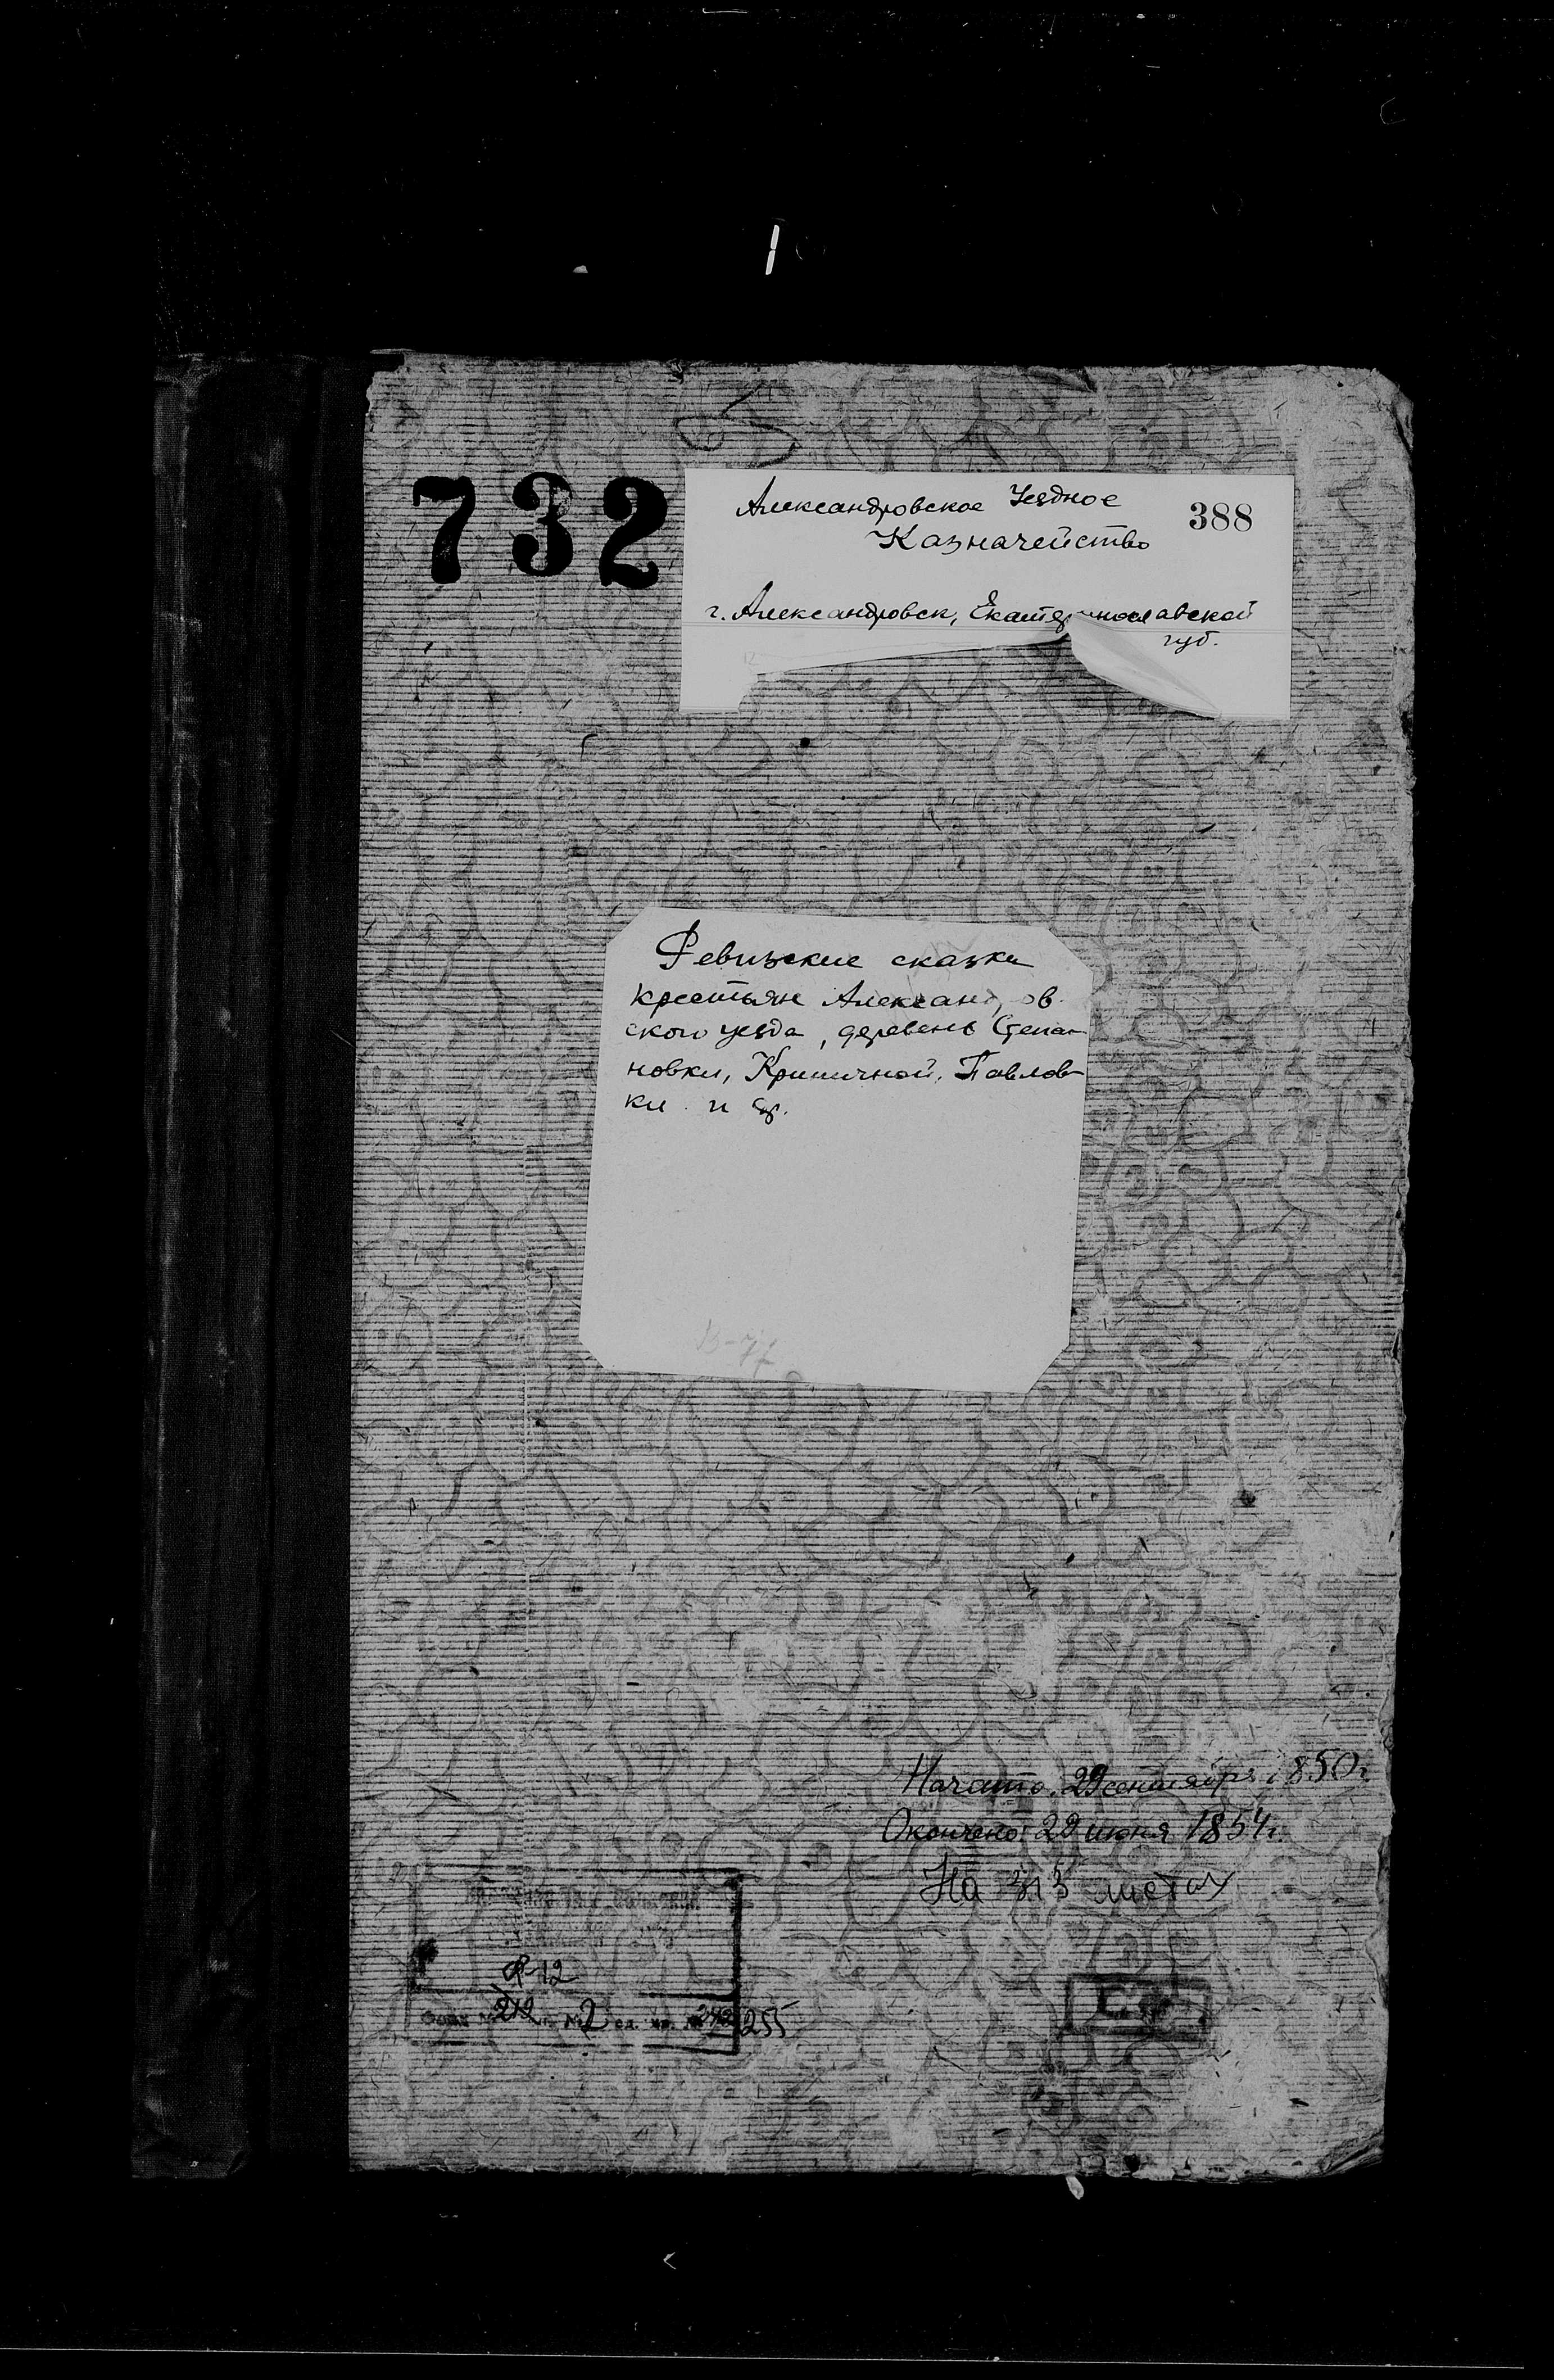 732
Александровское Уездное
388
Казначейство
г. Александровск, Екатеринославской
губ.
Ревизские сказки
крестьян Александров-
ского уезда, деревень Степа-
новки, Криничной, Павлов-
ки и др.
Начато: 29 сентября 1850г.
Окончено: 29 июня 1854г.
На 313 листах
Ф-12
2
255